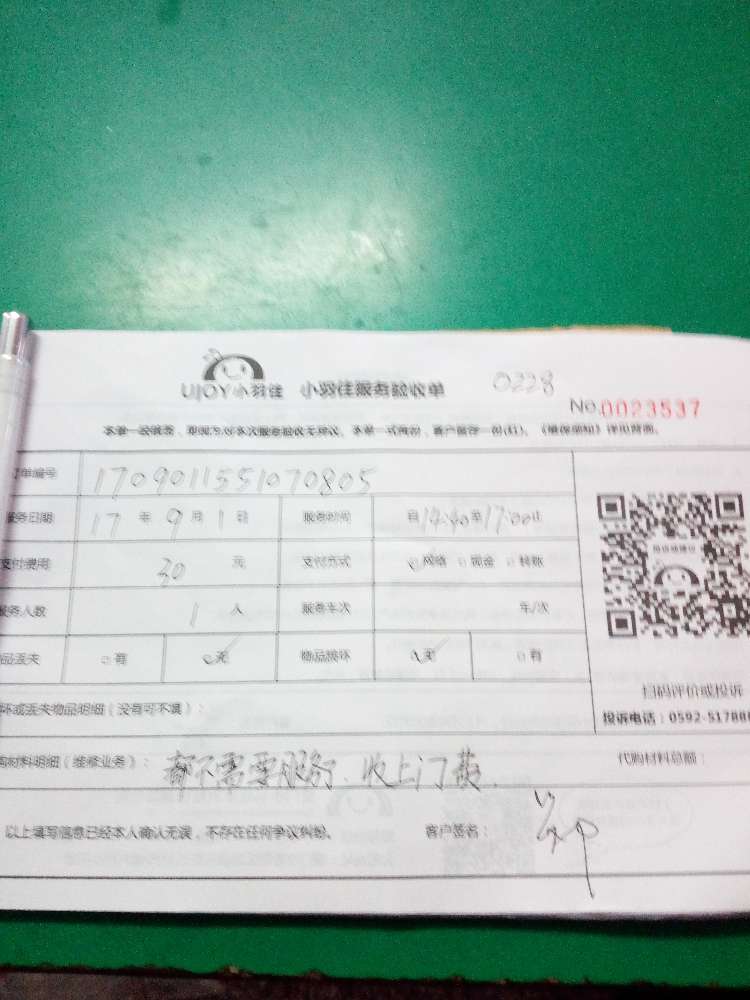 UJOY小羽佳 小羽佳服务验收单 0228
No.0023537
本单一经填写,即视为对本次服务验收无异议。本单一式两份,客户留存一份(红)。《维保须知》详见背面。
单编号 1709011551070805
服务日期 17 年 9 月 1 日 服务时间 自14:40至17:00止
支付费用 30 元 支付方式 网络 现金 转账
服务人数 1 人 服务车次 车/次
品丢失 有 无 物品损坏 无 有
坏或丢失物品明细(没有可不填):
购材料明细(维修业务): 都不需要服务、收上门费. 代购材料总额:
以上填写信息已经本人确认无误,不存在任何争议纠纷。 客户签名:
扫码评价或投诉
投诉电话:0592-517888